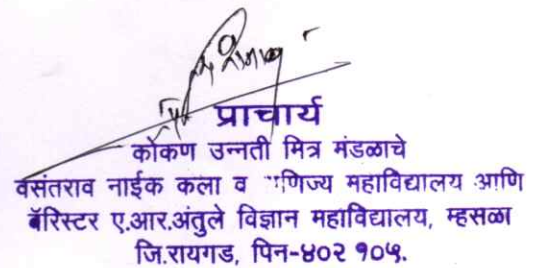 प्राचार्य
कोकण उन्नती मित्र मंडळाचे
वसंतराव नाईक कला व णिज्य महाविद्यालय आणि
बॅरिस्टर ए.आर.अंतुले विज्ञान महाविद्यालय, म्हसळा
जि.रायगड, पिन-४०२ १०५.